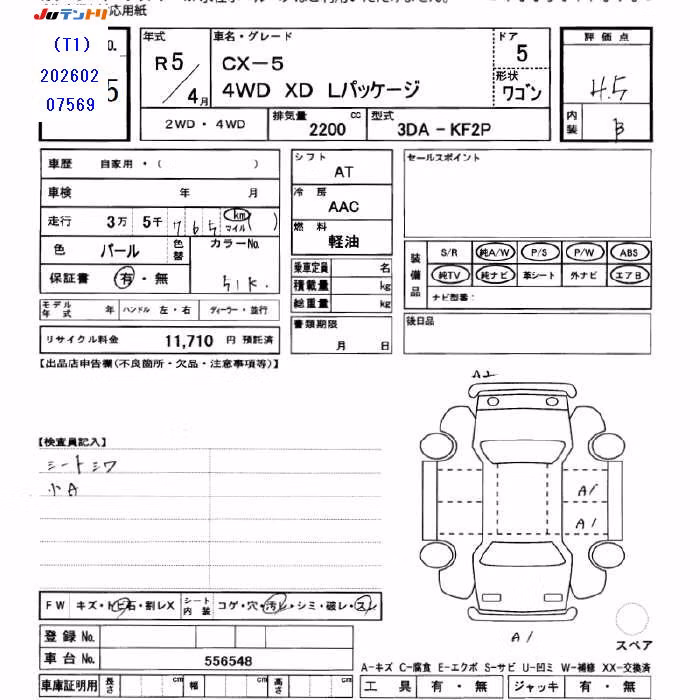 応用紙
Juテントリ
(T1)
202602
07569
No.
5
年式 R 5 / 4 月
車名・グレード
CX-5
4WD XD Lパッケージ
ドア 5
形状 ワゴン
2WD・4WD
排気量 2200 cc
型式 3DA-KF2P
評価点
4.5
内装 B
車歴 自家用・( )
車検 年 月
走行 3万 5千 7 6 5 km マイル ( )
色 パール 色替 カラーNo. 51K.
保証書 有・無
モデル年式 年 ハンドル 左・右 ディーラー・並行
リサイクル料金 11,710 円 預託済
シフト AT
冷房 AAC
燃料 軽油
乗車定員 名
積載量 kg
総重量 kg
書類期限
月 日
セールスポイント
装備品
S/R 純A/W P/S P/W ABS
純TV 純ナビ 革シート 外ナビ エアB
ナビ型番:
後日品
【出品店申告欄(不良箇所・欠品・注意事項等)】
【検査員記入】
シートシワ
小A
A2
A1
A1
A1
スペア
FW キズ・トビ石・割レX シート内装 コゲ・穴・汚レ・シミ・破レ・スレ
登録No.
車台No. 556548
車庫証明用 長さ cm 幅 cm 高さ cm
A-キズ C-腐食 E-エクボ S-サビ U-凹ミ W-補修 XX-交換済
工具 有・無 ジャッキ 有・無